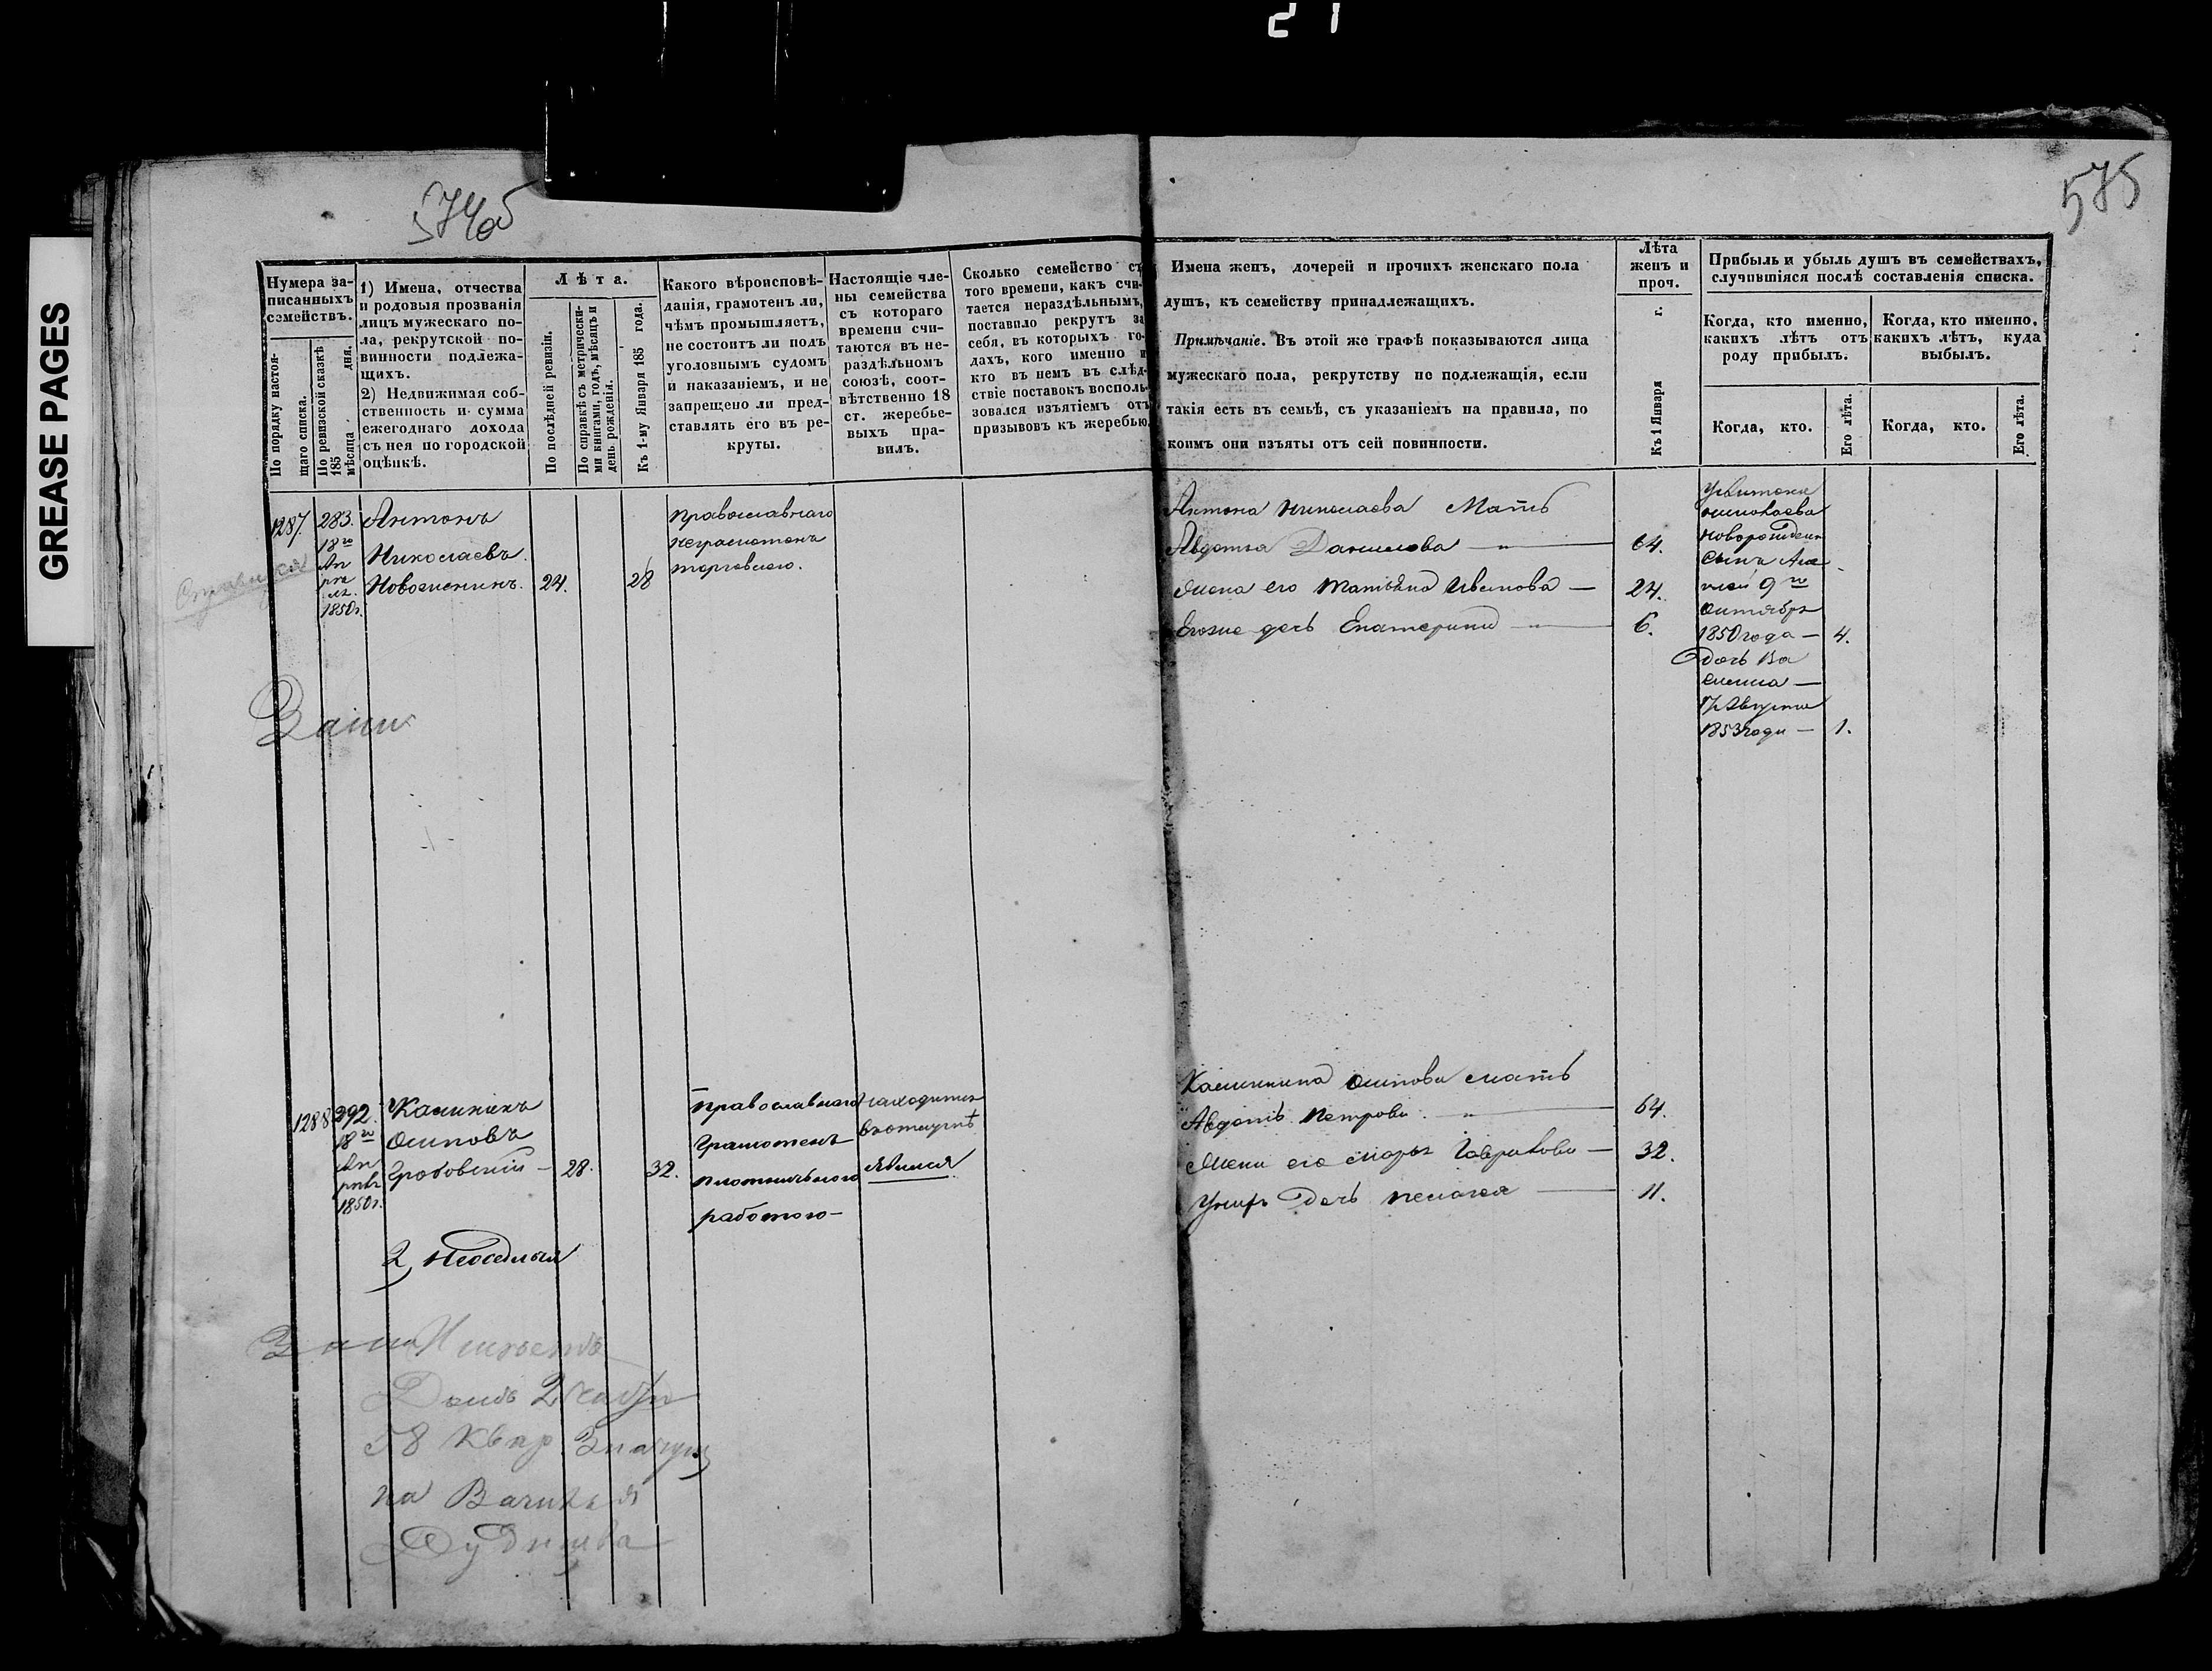 21
GREASE PAGES
574об
575
Нумера записанныхъ семействъ.
По порядку настоящаго списка.
По ревизской сказкѣ 185 мѣсяца дня.
1) Имена, отчества
и родовыя прозванія
лицъ мужескаго по-
ла, рекрутской по-
винности подлежа-
щихъ.
2) Недвижимая соб-
ственность и сумма
ежегоднаго дохода
съ нея по городской
оцѣнкѣ.
Лѣта.
По послѣдней ревизіи.
По справкѣ съ метрически-
ми книгами, годъ, мѣсяцъ и
день рожденія.
Къ 1-му Января 185 года.
Какого вѣроисповѣ-
данія, грамотенъ ли,
чѣмъ промышляетъ,
не состоитъ ли подъ
уголовнымъ судомъ
и наказаніемъ, и не
запрещено ли пред-
ставлять его въ ре-
круты.
Настоящіе чле-
ны семейства
съ котораго
времени счи-
таются въ не-
раздѣльномъ
союзѣ, соот-
вѣтственно 18
ст. жеребье-
выхъ пра-
вилъ.
Сколько семейство съ
того времени, какъ счи-
тается нераздѣльнымъ,
поставило рекрутъ за
себя, въ которыхъ го-
дахъ, кого именно и
кто въ немъ въ слѣд-
ствіе поставокъ восполь-
зовался изъятіемъ отъ
призывовъ къ жеребью.
Имена женъ, дочерей и прочихъ женскаго пола
душъ, къ семейству принадлежащихъ.
Примѣчаніе. Въ этой же графѣ показываются лица
мужескаго пола, рекрутству не подлежащія, если
такія есть въ семьѣ, съ указаніемъ на правила, по
коимъ они изъяты отъ сей повинности.
Лѣта
женъ и
проч.
Къ 1 Января г.
Прибыль и убыль душъ въ семействахъ,
случившіяся послѣ составленія списка.
Когда, кто именно,
какихъ лѣтъ отъ
роду прибылъ.
Когда, кто именно,
какихъ лѣтъ, куда
выбылъ.
Когда, кто.
Его лѣта.
Когда, кто.
Его лѣта.
1287.
283.
18го
Ап
рѣ
ля
1850г.
Антонъ
Николаевъ
24.
28
Православнаго
неграмотенъ
торговлею.
Антона Николаева Мать
Авдотья Данилова — 64.
Жена его Татьяна Иванова — 24.
Его же дочь Екатерина — 6.
Николаева
новорожден
сынъ
9го
Октября
1850 года — 4.
Дочь Ва
силиса —
17 Августа
1853 года — 1.
1288
292.
18го
Ап
рѣл
1850г.
Калининъ
Осиповъ
Грабовский — 28.
32.
Православнаго
грамотенъ
плотничьною
работою —
находится
въ отлучкѣ
явился
Калинина Осипова мать
Авдотья Петрова — 64.
Жена его Марья Гаврилова — 32.
У нихъ дочь Пелагея — 11.
2, Неоседлый
58 Квар
на